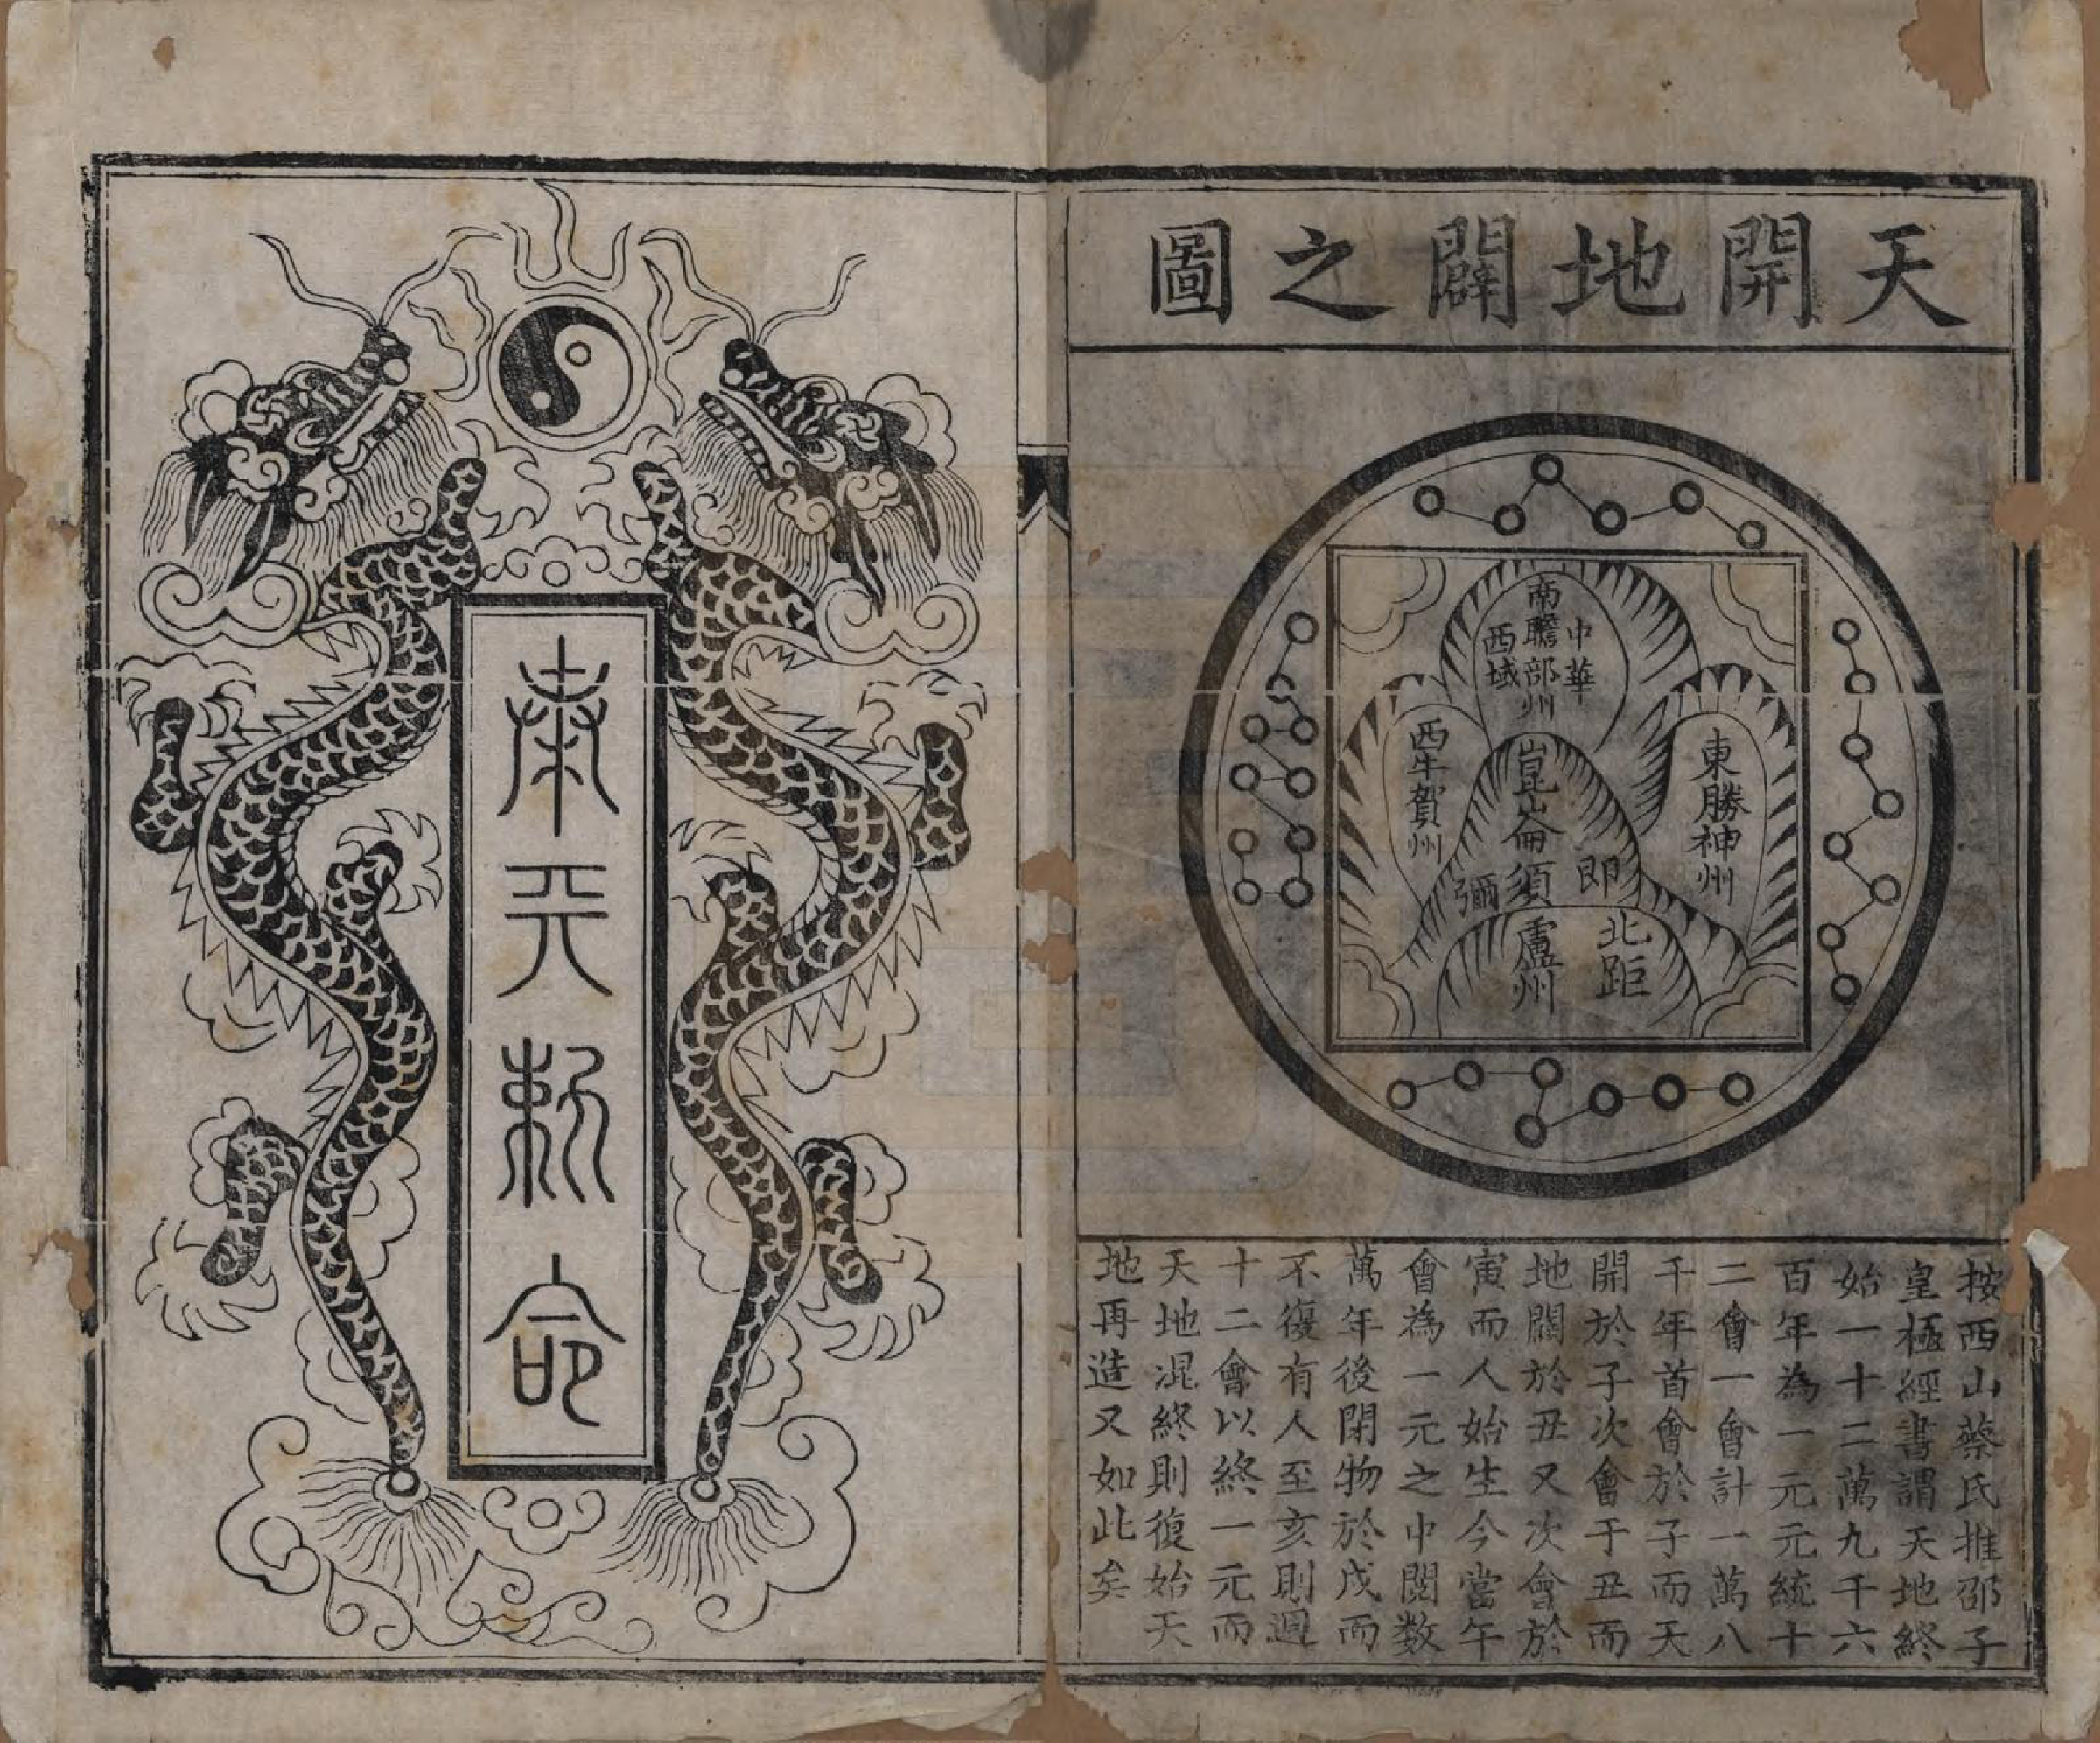 天開地闢之圖
南贍部州
中華
西域
東勝神州
西牛賀州
崑崙即須彌
北距盧州
按西山蔡氏推邵子
皇極經書謂天地終
始一十二萬九千六
百年為一元元統十
二會一會計一萬八
千年首會於子而天
開於子次會于丑而
地闢於丑又次會於
寅而人始生今當午
會為一元之中閱数
萬年後閉物於戊而
不復有人至亥則週
十二會以終一元而
天地混終則復始天
地再造又如此矣
奉天勅命